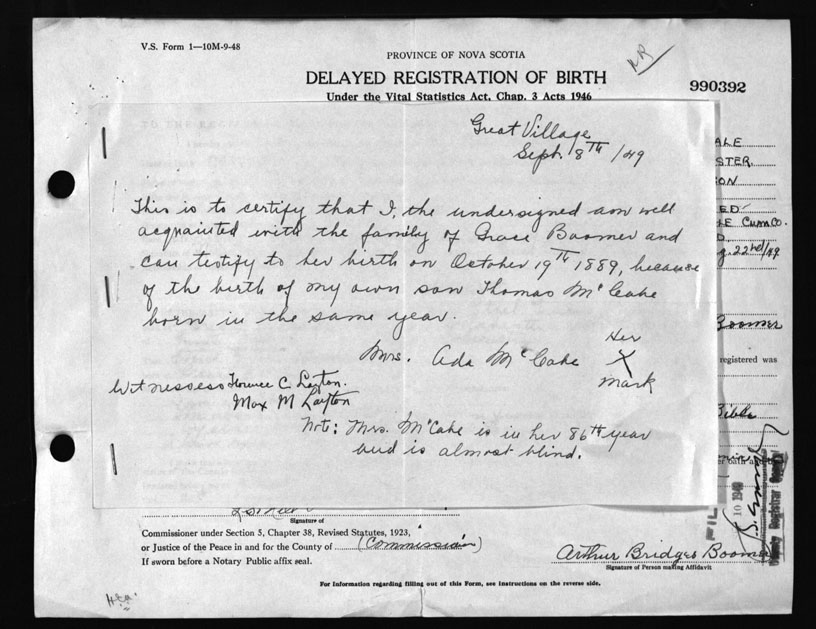 V.S. Form 1—10M-9-48
PROVINCE OF NOVA SCOTIA
DELAYED REGISTRATION OF BIRTH
990392
Under the Vital Statistics Act, Chap. 3 Acts 1946
Great Village
Sept. 8TH /49
This is to certify that I, the undersigned am well
acquainted with the family of Grace Boomer and
can testify to her birth on October 19TH 1889, because
of the birth of my own son Thomas McCabe
born in the same year.
Mrs. Ada McCabe
Her
X
mark
Witnesses Florence C. Layton.
Max M Layton
Note: Mrs. McCabe is in her 86th year
and is almost blind.
ALE
STER
ON
ED
LE CUM CO.
D
g. 22nd/49
Boomer
registered was
Bible
10 1949
FIL
Signature of
Commissioner under Section 5, Chapter 38, Revised Statutes, 1923,
or Justice of the Peace in and for the County of (Commission)
If sworn before a Notary Public affix seal.
Arthur Bridges Boomer
Signature of Person making Affidavit
For Information regarding filling out of this Form, see Instructions on the reverse side.